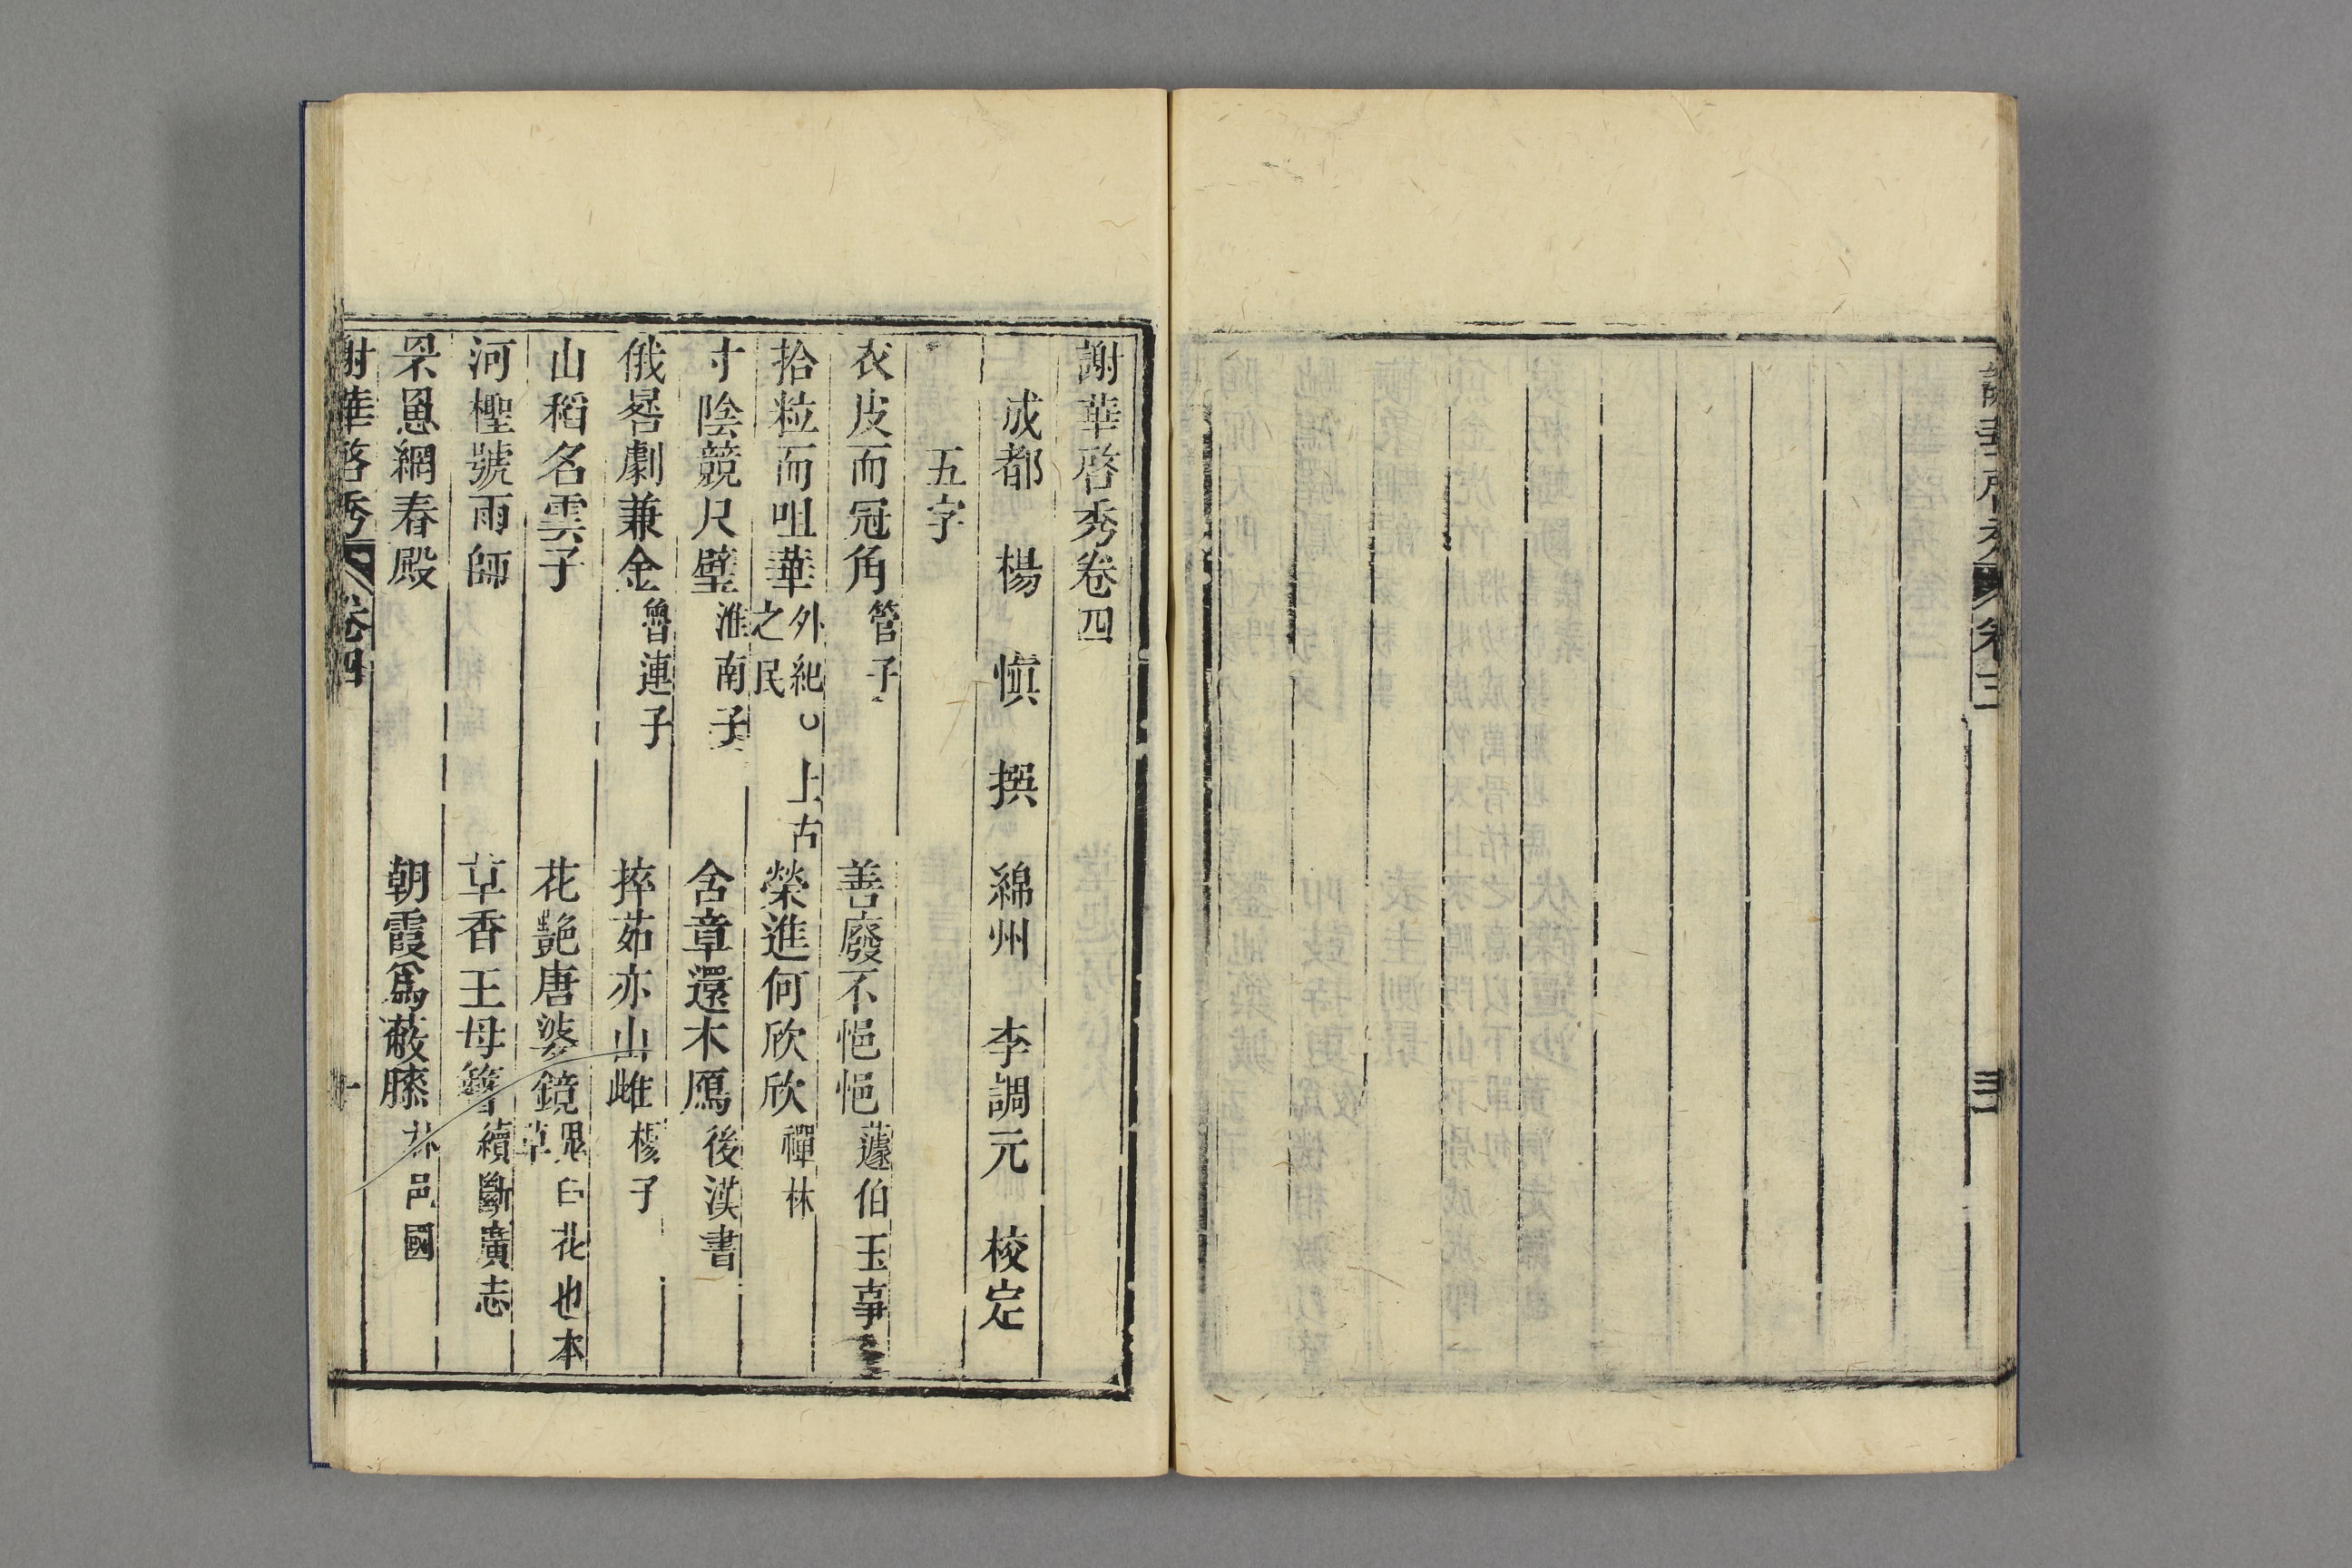 卷三
謝華啓秀卷四
成都 楊 愼 撰 綿州 李調元 校定
五字
衣皮而冠角 管子 善廢不悒悒 蘧伯玉事
拾粒而咀華 外紀○上古之民 榮進何欣欣 禪林
寸陰競尺璧 淮南子 含章還木鴈 後漢書
俄晷劇兼金 魯連子 捽茹亦山雌 楊子
山稻名雲子 花艷唐婆鏡 鬼臼花也本草
河檉號雨師 草香王母簪 續斷廣志
罘罳網春殿 朝霞爲蔽膝 林邑國
謝華啓秀 卷四 一